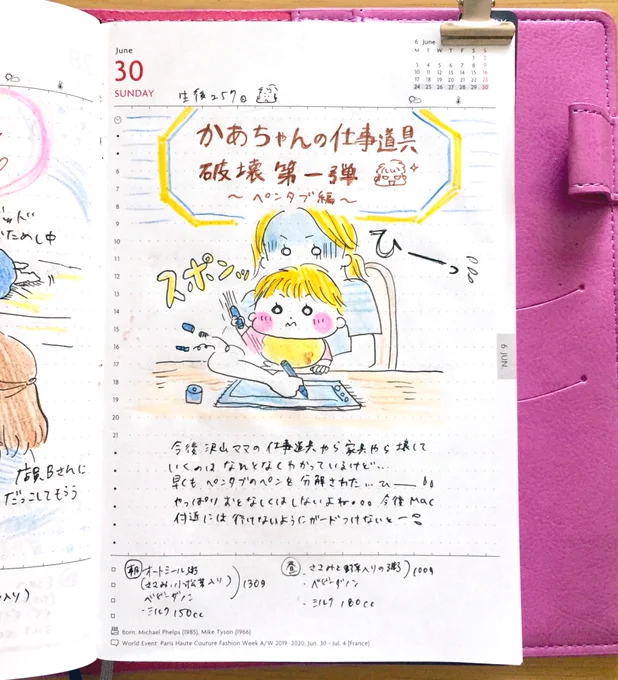 June
30
SUNDAY
生後257日
6 June
M T W T F S S
1 2
3 4 5 6 7 8 9
10 11 12 13 14 15 16
17 18 19 20 21 22 23
24 25 26 27 28 29 30
かあちゃんの仕事道具
破壊第一弾
〜ペンタブ編〜
ひーっ
スポンッ
6
7
8
9
10
11
12
13
14
15
16
17
18
19
20
21
6 JUN.
今後沢山ママの仕事道具やら家具やら壊して
いくのは なんとなくわかっているけど…
早くも ペンタブのペンを分解された…ひー
やっぱりおとなしくはしないよね。。。今後Mac
付近には行けないようにガードつけないとー
朝 オートミール粥
(ささみ、小松菜入り) 130g
・ベビーダノン
・ミルク 150cc
昼 ・ささみと野菜入りの粥 100g
・ベビーダノン
・ミルク 180cc
Born: Michael Phelps (1985), Mike Tyson (1966)
World Event: Paris Haute Couture Fashion Week A/W 2019-2020, Jun. 30 - Jul. 4 (France)
ためし中
店員Bさんに
だっこしてもらう
入り)